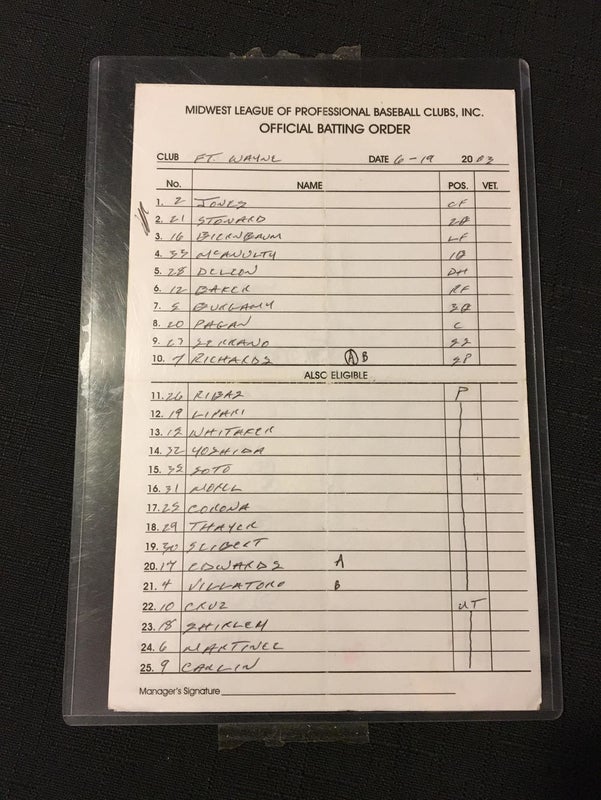 MIDWEST LEAGUE OF PROFESSIONAL BASEBALL CLUBS, INC.
OFFICIAL BATTING ORDER
CLUB FT. WAYNE DATE 6-19 2003
No. NAME POS. VET.
1. 2 JONES CF
2. 21 STONARD 2B
3. 16 BIERNBAUM LF
4. 33 MCANULTY 1B
5. 28 DELEON DH
6. 12 BAKER RF
7. 5 BURGAMY 3B
8. 20 PAGAN C
9. 27 SERRANO SS
10. 7 RICHARDS A B SP
ALSO ELIGIBLE
11. 26 RIBAS P
12. 19 LIPARI
13. WHITAKER
14. 32 YOSHIDA
15. SOTO
16. 31 NOEL
17. 25 CORONA
18. 29 THAYER
19. 30 SEIBERT
20. 17 EDWARDS A
21. 4 VILLATORO B
22. 10 CRUZ UT
23. 18 SHIRLEY
24. 6 MARTINEZ
25. 9 CARLIN
Manager's Signature